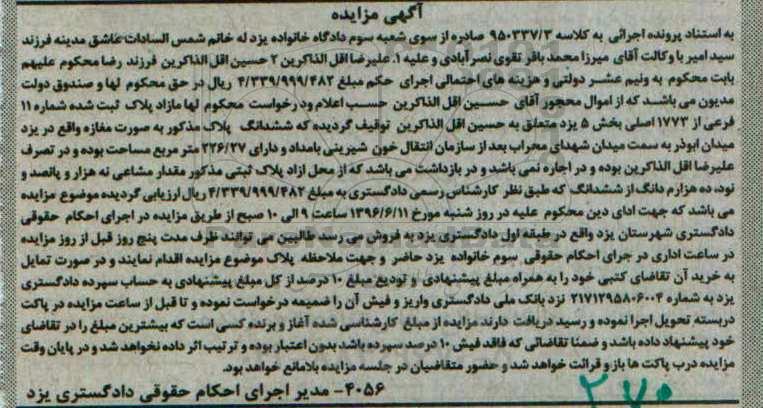 آگهی مزایده
به استناد پرونده اجرائی به کلاسه ۹۵۰۳۳۷/۳ صادره از سوی شعبه سوم دادگاه خانواده یزد له خانم شمس السادات عاشق مدینه فرزند
سید امیر با وکالت آقای میرزا محمد باقر تقوی نصرآبادی و علیه ۱. علیرضا اقل الذاکرین ۲ حسین اقل الذاکرین فرزند رضا محکوم علیهم
بابت محکوم به ونیم عشر دولتی و هزینه های احتمالی اجرای حکم مبلغ ۴/۳۳۹/۹۹۹/۴۸۲ ریال در حق محکوم لها و صندوق دولت
مدیون می باشد که از اموال محجور آقای حسین اقل الذاکرین حسب اعلام ود رخواست محکوم لها مازاد پلاک ثبت شده شماره ۱۱
فرعی از ۱۷۷۳ اصلی بخش ۵ یزد متعلق به حسین اقل الذاکرین توقیف گردیده که ششدانگ پلاک مذکور به صورت مغازه واقع در یزد
میدان ابوذر به سمت میدان شهدای محراب بعد از سازمان انتقال خون شیرینی بامداد و دارای ۲۲۶/۲۷ متر مربع مساحت بوده و در تصرف
علیرضا اقل الذاکرین بوده و در اجاره نمی باشد و در بازداشت می باشد که از محل ازاد پلاک ثبتی مذکور مقدار مشاعی نه هزار و پانصد و
نود، ده هزارم دانگ از ششدانگ که طبق نظر کارشناس رسمی دادگستری به مبلغ ۴/۳۳۹/۹۹۹/۴۸۲ ریال ارزیابی گردیده موضوع مزایده
می باشد که جهت ادای دین محکوم علیه در روز شنبه مورخ ۱۳۹۶/۶/۱۱ ساعت ۹ الی ۱۰ صبح از طریق مزایده در اجرای احکام حقوقی
دادگستری شهرستان یزد واقع در طبقه اول دادگستری یزد به فروش می رسد طالبین می توانند ظرف مدت پنج روز قبل از روز مزایده
در ساعت اداری در جرای احکام حقوقی سوم خانواده یزد حاضر و جهت ملاحظه پلاک موضوع مزایده اقدام نمایند و در صورت تمایل
به خرید آن تقاضای کتبی خود را به همراه مبلغ پیشنهادی و تودیع مبلغ ۱۰ درصد از کل مبلغ پیشنهادی به حساب سپرده دادگستری
یزد به شماره ۲۱۷۱۲۹۵۸۰۶۰۰۴ نزد بانک ملی دادگستری واریز و فیش آن را ضمیمه درخواست نموده و تا قبل از ساعت مزایده در پاکت
دربسته تحویل اجرا نموده و رسید دریافت دارند مزایده از مبلغ کارشناسی شده آغاز و برنده کسی است که بیشترین مبلغ را در تقاضای
خود پیشنهاد داده باشد و ضمنا تقاضائی که فاقد فیش ۱۰ درصد سپرده باشد بدون اعتبار بوده و ترتیب اثر داده نخواهد شد و در پایان وقت
مزایده درب پاکت ها باز و قرائت خواهد شد و حضور متقاضیان در جلسه مزایده بلامانع خواهد بود.
۴۰۵۶- مدیر اجرای احکام حقوقی دادگستری یزد